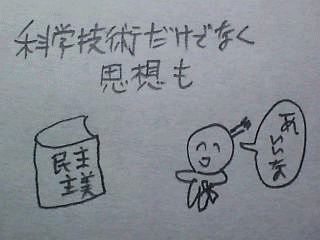 科学技術だけでなく
思想も
民主
主義
あれ
いいな